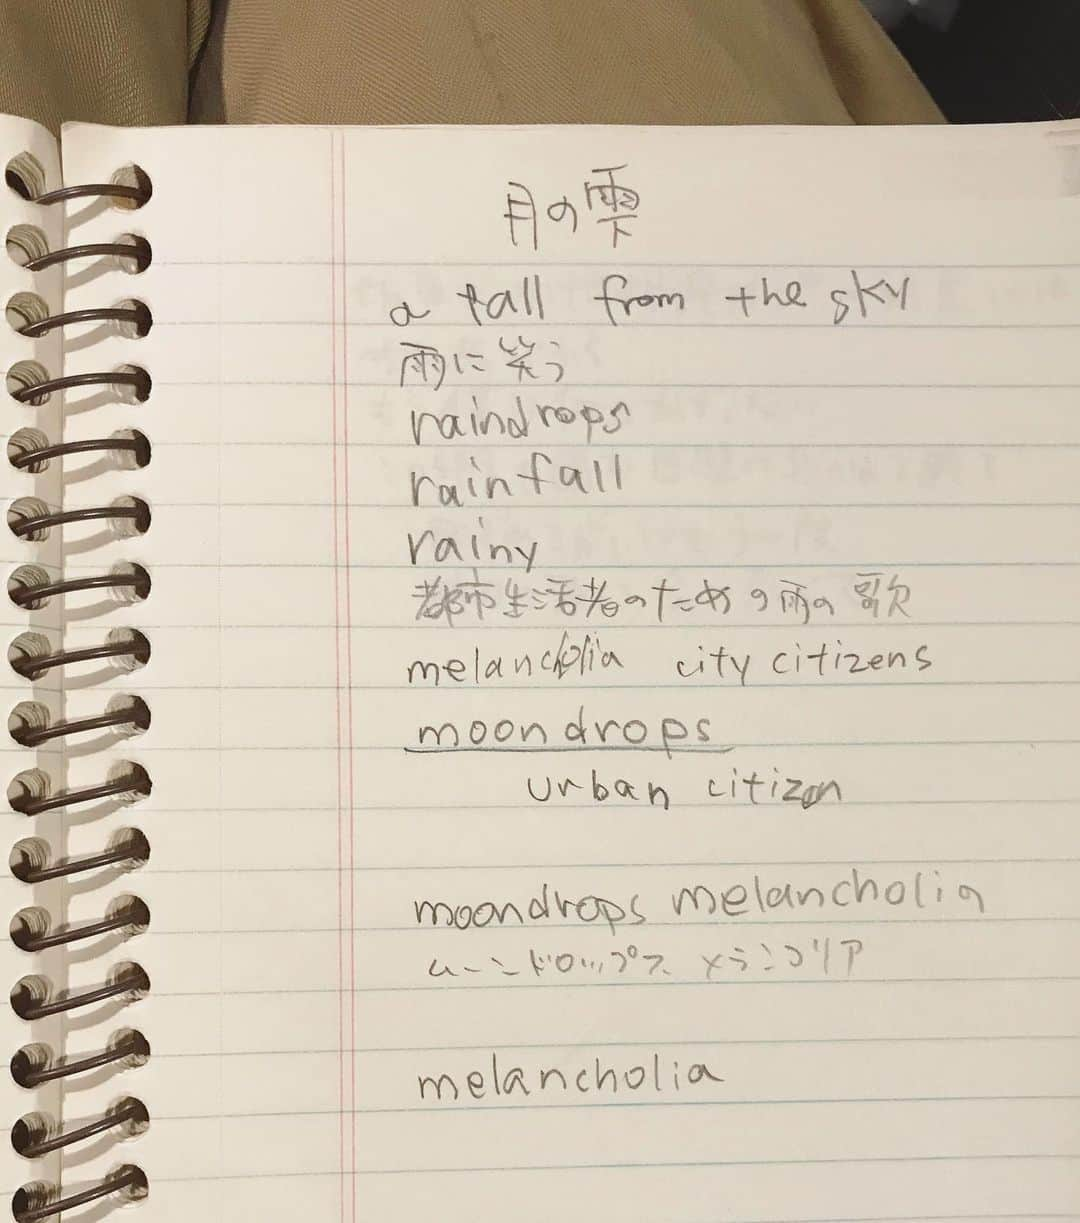 月の雫
a fall from the sky
雨に笑う
raindrops
rainfall
rainy
都市生活者のための雨の歌
melancholia city citizens
moondrops
urban citizen
moondrops melancholia
ムーンドロップス メランコリア
melancholia